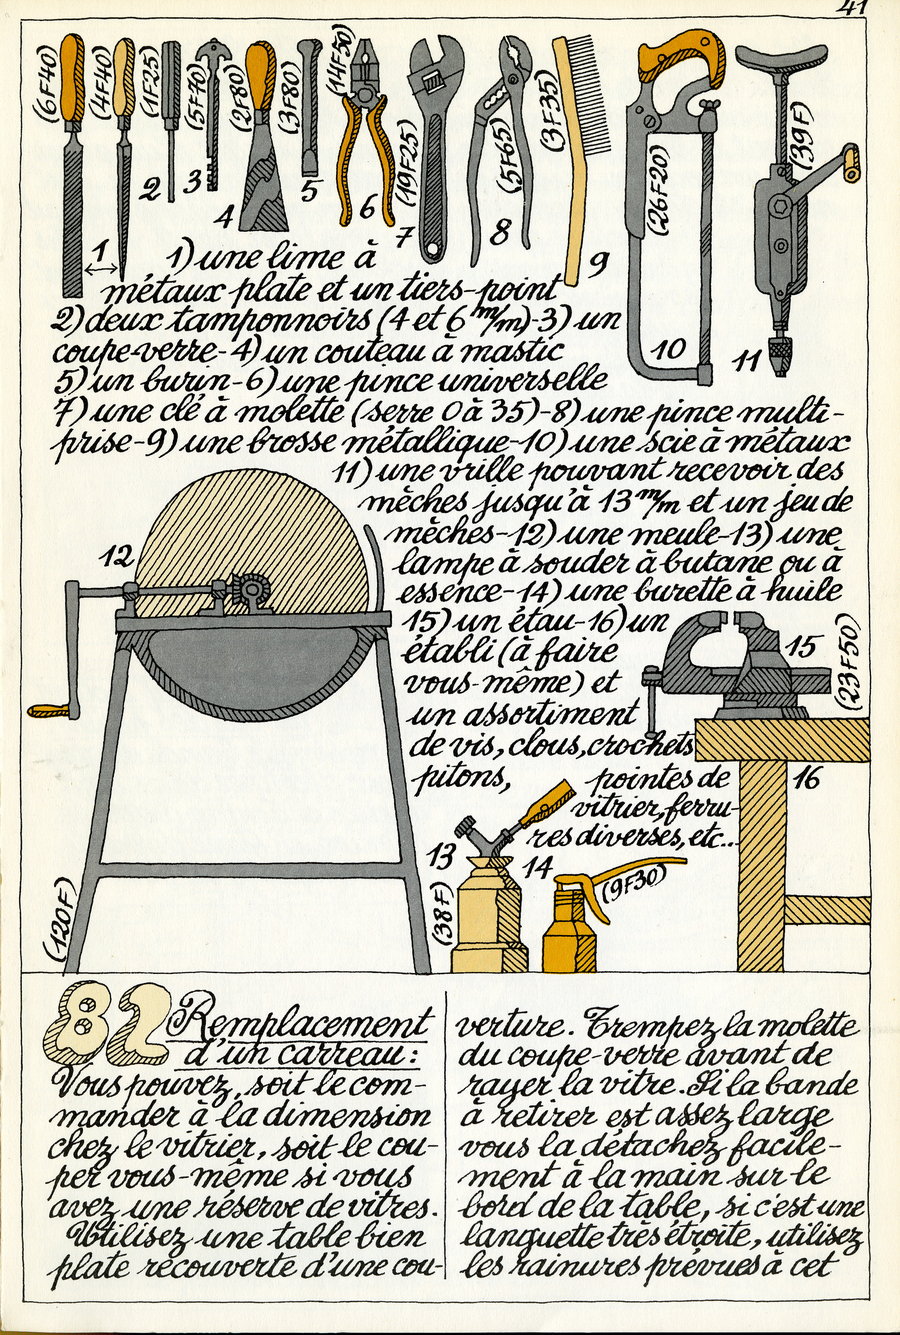 41
(6F40)
(4F40)
(1F25)
(5F40)
(2F80)
(3F80)
(14F50)
(19F25)
(5F65)
(3F35)
(26F20)
(39F)
1
2
3
4
5
6
7
8
9
10
11
1) une lime à
métaux plate et un tiers-point
2) deux tamponnoirs (4 et 6 m/m)-3) un
coupe-verre-4) un couteau à mastic
5) un burin-6) une pince universelle
7) une clé à molette (serre 0 à 35)-8) une pince multi-
prise-9) une brosse métallique-10) une scie à métaux
11) une vrille pouvant recevoir des
mèches jusqu'à 13 m/m et un jeu de
mèches-12) une meule-13) une
lampe à souder à butane ou à
essence-14) une burette à huile
15) un étau-16) un
établi (à faire
vous-même) et
un assortiment
de vis, clous, crochets
pitons, pointes de
vitrier, ferru-
res diverses, etc..
12
(120F)
13
(38F)
14
(9F30)
15
(23F50)
16
82 Remplacement
d'un carreau:
Vous pouvez, soit le com-
mander à la dimension
chez le vitrier, soit le cou-
per vous-même si vous
avez une réserve de vitres.
Utilisez une table bien
plate recouverte d'une cou-
verture. Trempez la molette
du coupe-verre avant de
rayer la vitre. Si la bande
à retirer est assez large
vous la détachez facile-
ment à la main sur le
bord de la table, si c'est une
languette très étroite, utilisez
les rainures prévues à cet